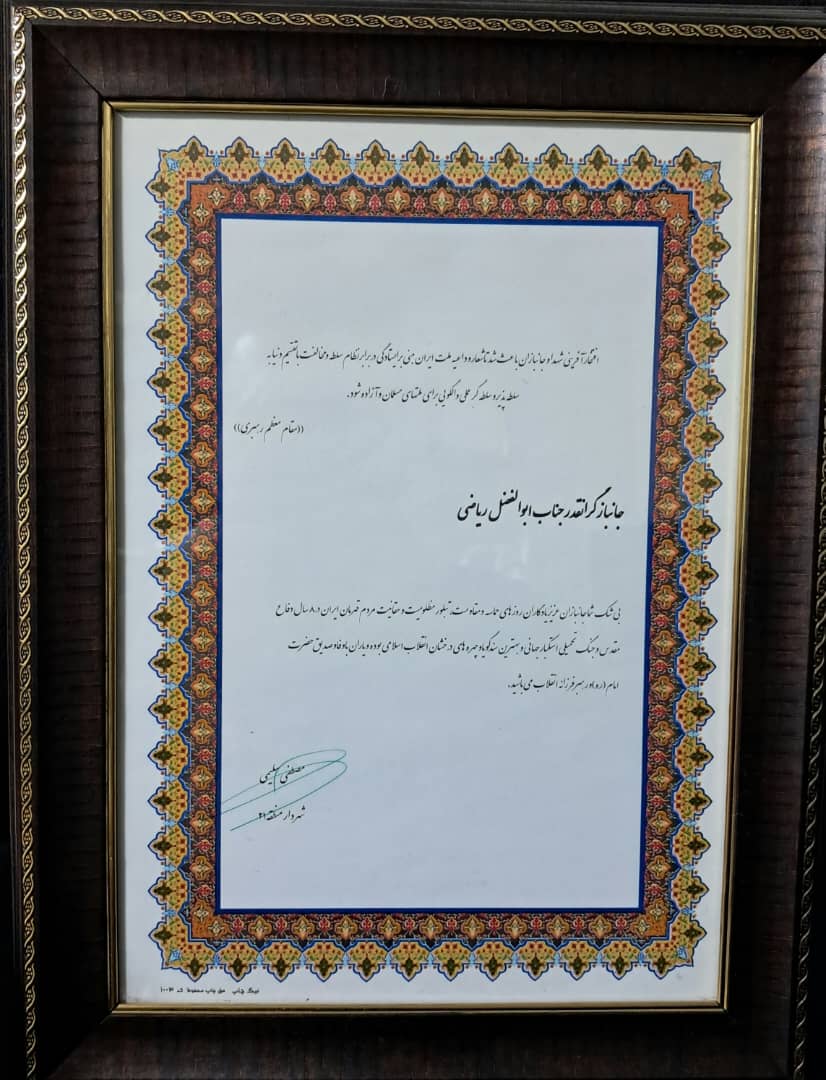 افتخارآفرینی شهدا و جانبازان باعث شد تا شعار و داعیه ملت ایران مبنی بر ایستادگی در برابر نظام سلطه و مخالفت با تقسیم دنیا به
سلطه پذیر و سلطه گر عملی و الگویی برای ملتهای مسلمان و آزاده شود.
((مقام معظم رهبری))
جانباز گرانقدر جناب ابوالفضل ریاضی
بی شک شما جانبازان عزیز یادگاران روزهای حماسه و مقاومت، تبلور مظلومیت و حقانیت مردم قهرمان ایران در ۸ سال دفاع
مقدس و جنگ تحمیلی استکبار جهانی و بهترین سند گویا و چهره های درخشان انقلاب اسلامی بوده و یاران باوفا و صدیق حضرت
امام (ره) و رهبر فرزانه انقلاب می باشید.
مصطفی سلیمی
شهردار منطقه ۲۱
نینگ چاپ حق چاپ محفوظ کد